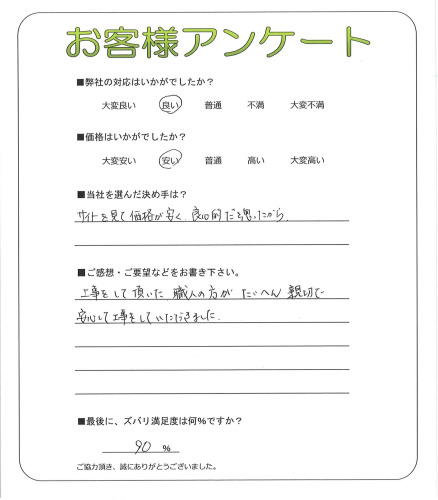 お客様アンケート
■弊社の対応はいかがでしたか？
大変良い 良い 普通 不満 大変不満
■価格はいかがでしたか？
大変安い 安い 普通 高い 大変高い
■当社を選んだ決め手は？
サイトを見て価格が安く、良心的だと思ったから。
■ご感想・ご要望などをお書き下さい。
工事をして頂いた 職人の方が たいへん 親切で
安心して工事をしていただきました。
■最後に、ズバリ満足度は何%ですか？
90 %
ご協力頂き、誠にありがとうございました。